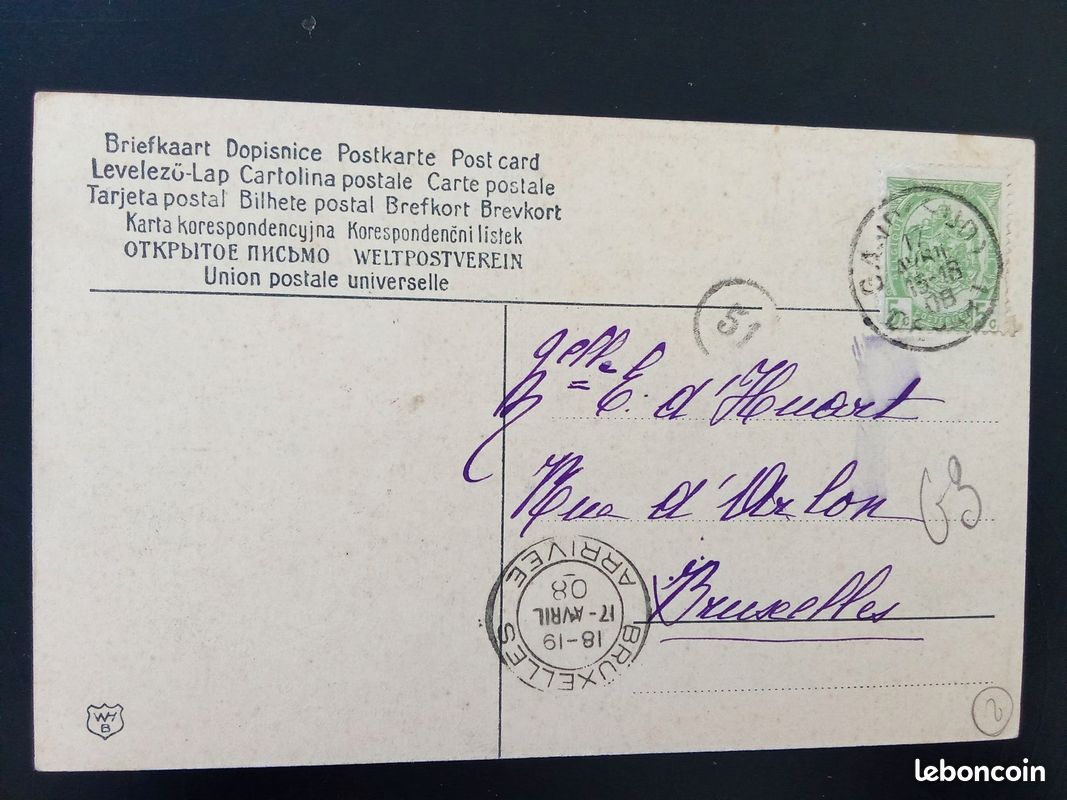 Briefkaart Dopisnice Postkarte Post card
Levelező-Lap Cartolina postale Carte postale
Tarjeta postal Bilhete postal Brefkort Brevkort
Karta korespondencyjna Korespondenčni listek
ОТКРЫТОЕ ПИСЬМО WELTPOSTVEREIN
Union postale universelle
17
AVRIL
08
5
E. d'Huart
Rue d'Arlon
63
Bruxelles
BRUXELLES
18-19
17-AVRIL
08
ARRIVEE
WH
B
2
leboncoin